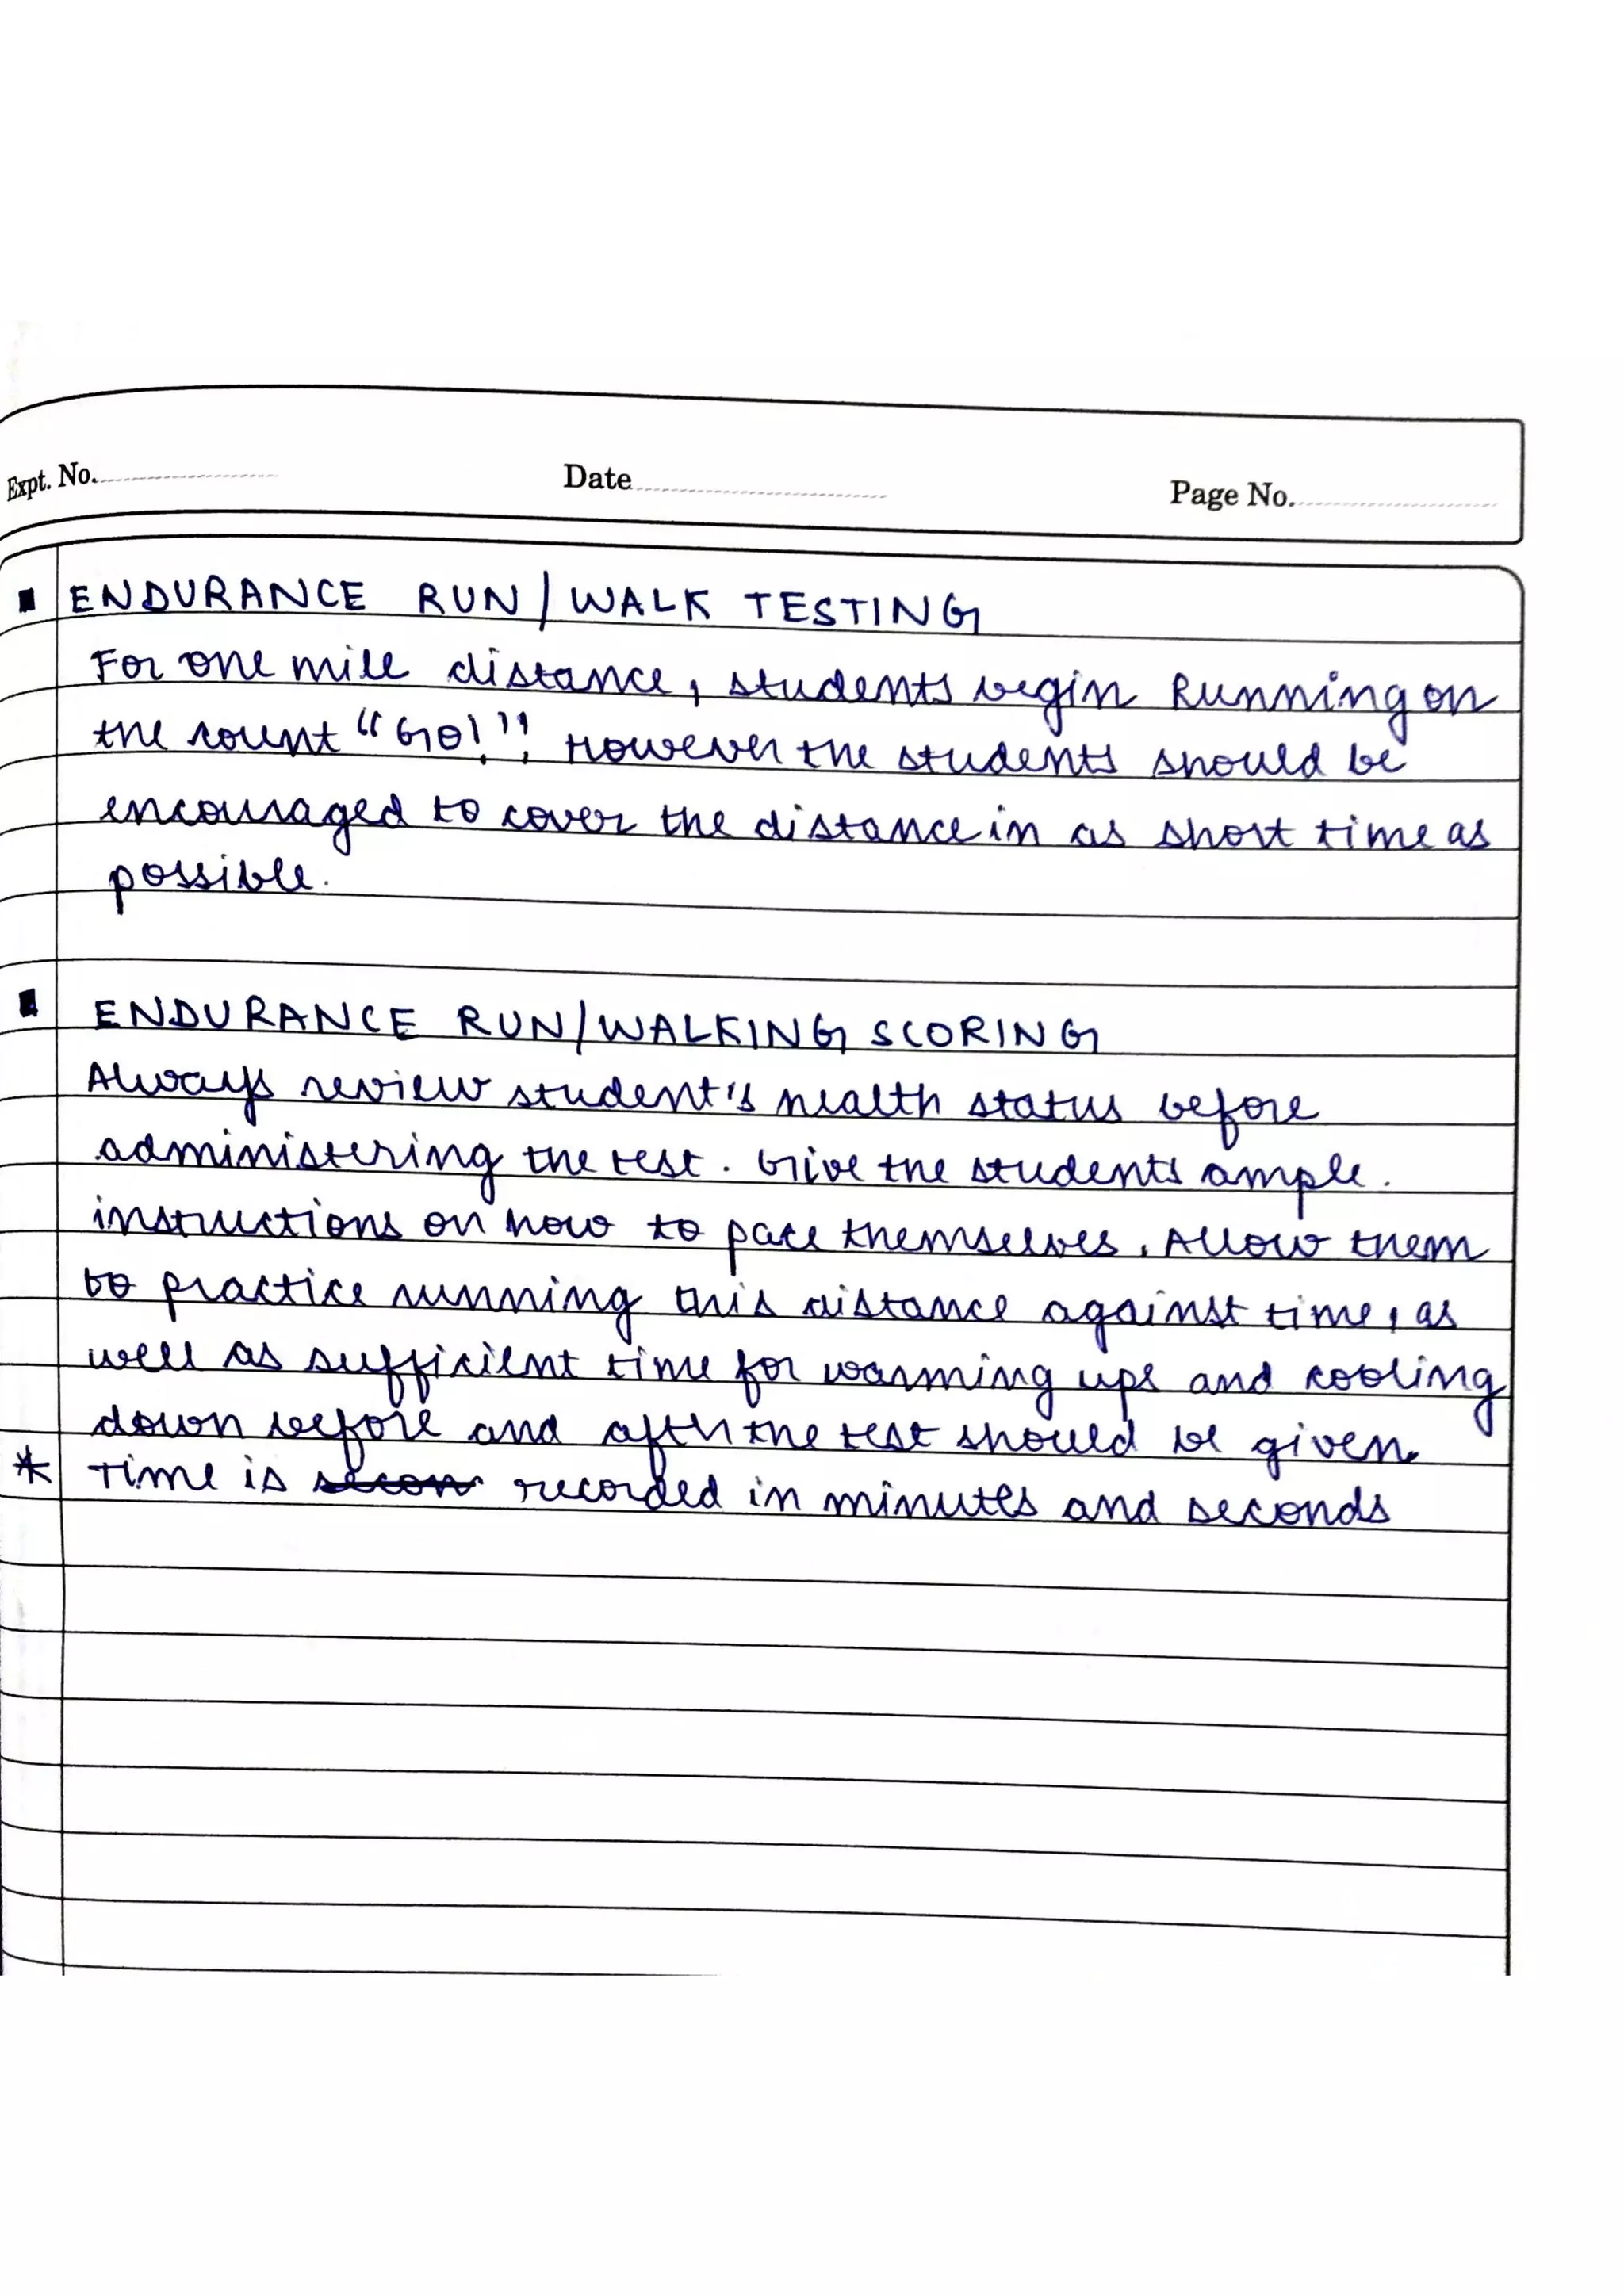 Expt. No. Date Page No.
ENDURANCE RUN/WALK TESTING
For one mile distance, students begin Running on
the count "GO!"; However the students should be
encouraged to cover the distance in as short time as
possible.
ENDURANCE RUN/WALKING SCORING
Always review student's health status before
administering the test. Give the students ample.
instructions on how to pace themselves. Allow them
to practice running this distance against time, as
well as sufficient time for warming ups and cooling
down before and after the test should be given.
* Time is secon recorded in minutes and seconds